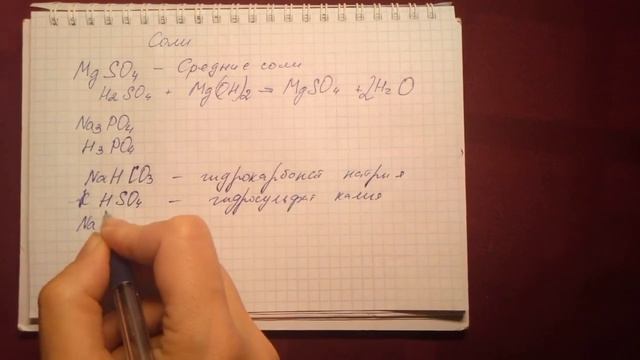 Соли
MgSO4 – Средние соли
H2SO4 + Mg(OH)2 = MgSO4 + 2H2O
Na3PO4
H3PO4
NaHCO3 – гидрокарбонат натрия
KHSO4 – гидросульфат калия
Na